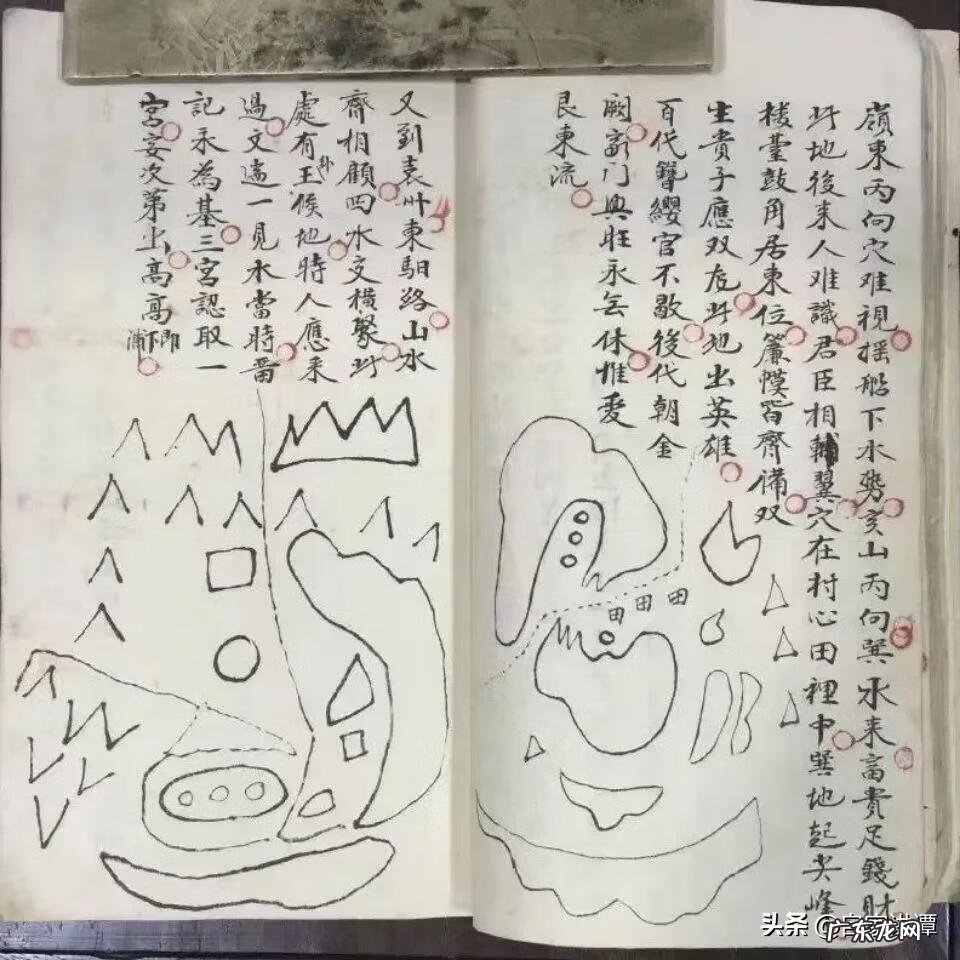 嶺東丙向穴难視搖船下水势亥山丙向巽水来富貴足錢財
此地後来人难識君臣相輔翼穴在村心田裡中巽地起尖峰
楼臺鼓角居東位簾幙皆齊備双
生貴子應双危此地出英雄
百代簪纓官不歇後代朝金
闕富门興旺永無休堆爱
艮東流
又到袁州東駅络山水
齊相顧四水交横聚此
處有王候地時人應来
卦
過文過一見水當時畄
記永為基三宮認取一
宮妄次第上高高
即下浦
田田田
头条
广东龙网